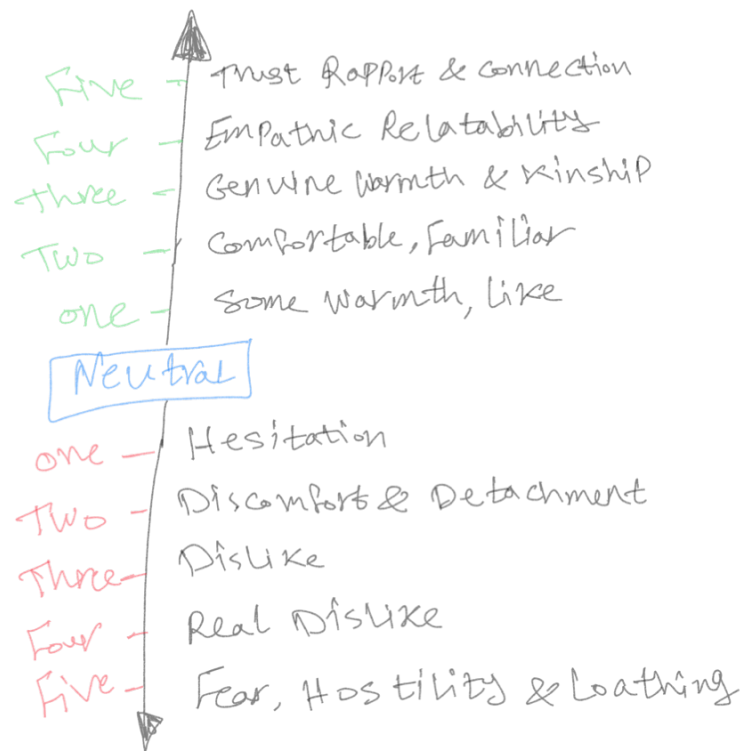 Five - Trust Rapport & connection
Four - Empathic Relatability
Three - Genuine Warmth & Kinship
Two - Comfortable, Familiar
one - Some Warmth, Like
Neutral
one - Hesitation
Two - Discomfort & Detachment
Three - Dislike
Four - Real Dislike
Five - Fear, Hostility & Loathing